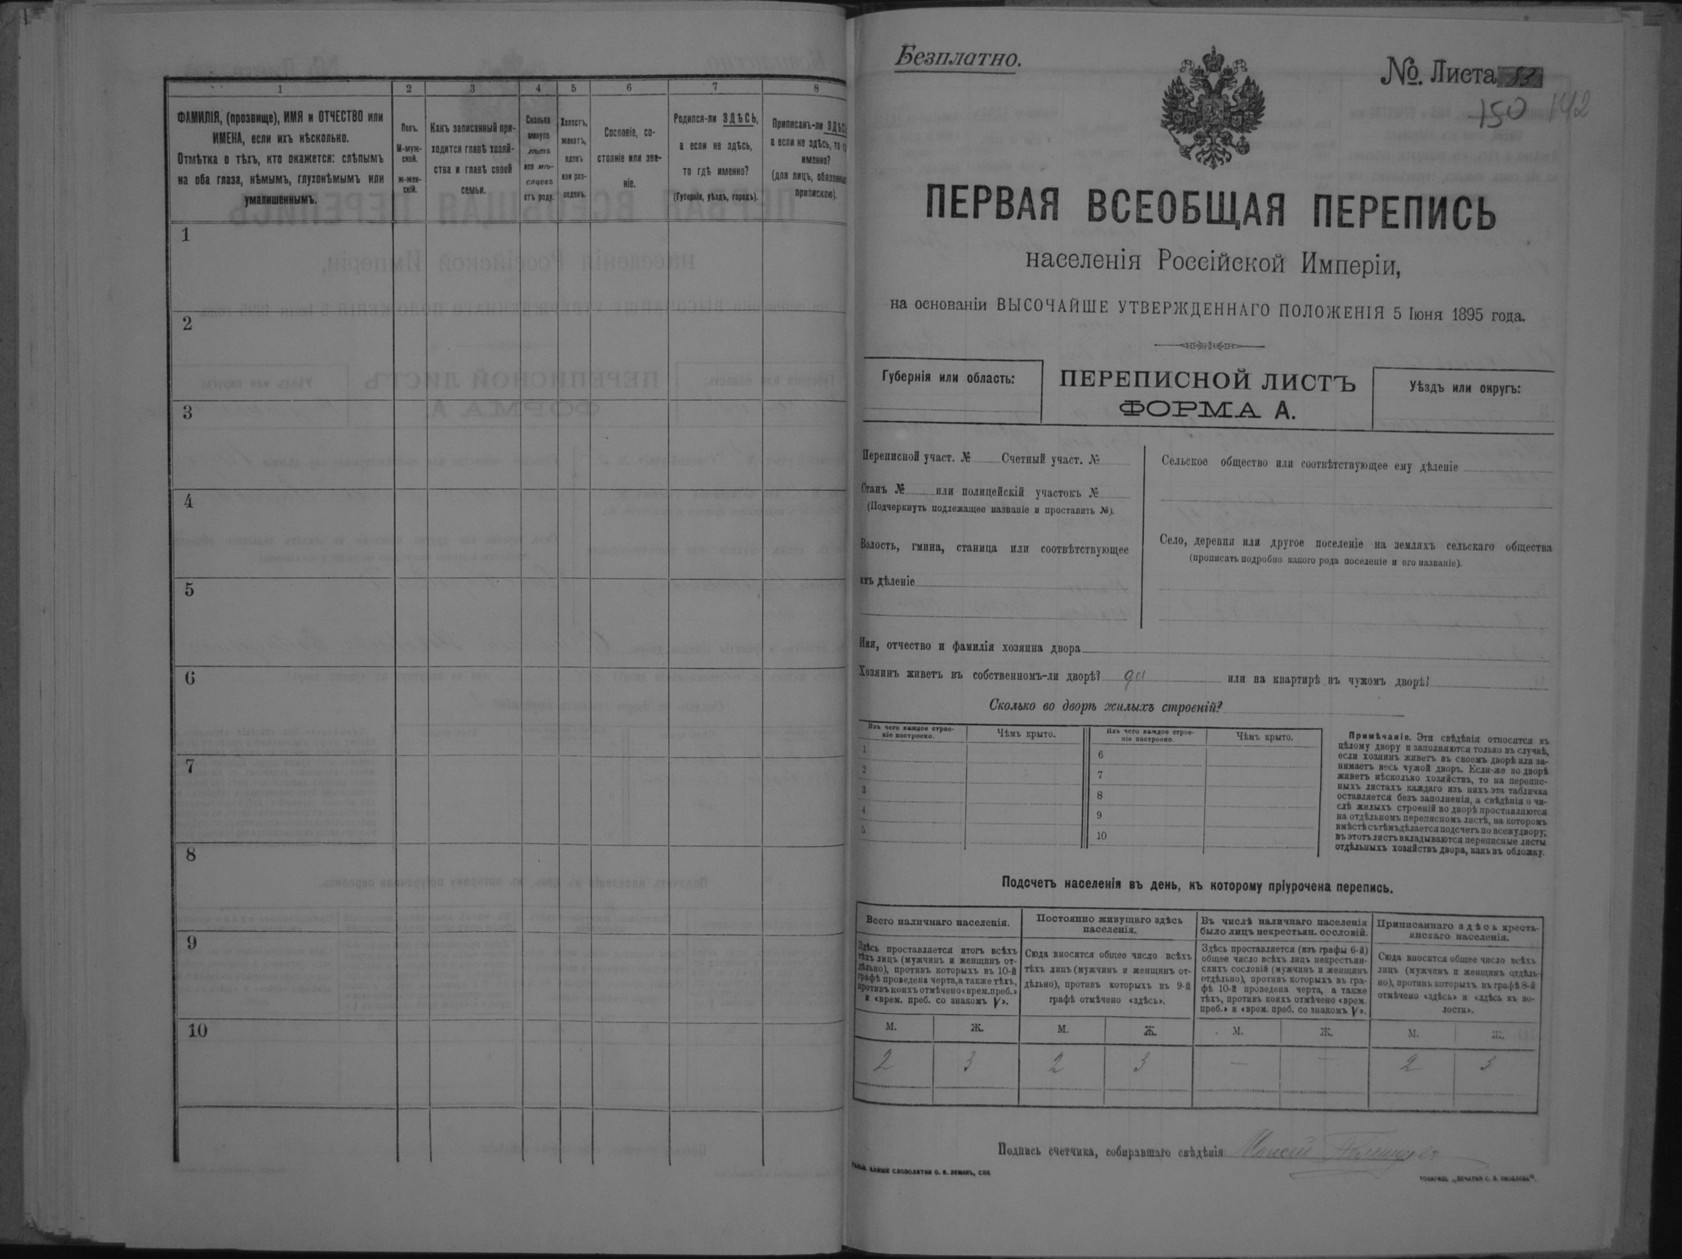 1 2 3 4 5 6 7 8
ФАМИЛІЯ, (прозвище), ИМЯ и ОТЧЕСТВО или
ИМЕНА, если ихъ нѣсколько.
Отмѣтка о тѣхъ, кто окажется: слѣпымъ
на оба глаза, нѣмымъ, глухонѣмымъ или
умалишеннымъ.
Полъ.
М-муж-
ской.
ж-жен-
скій.
Какъ записанный при-
ходится главѣ хозяй-
ства и главѣ своей
семьи.
Сколько
минуло
лѣтъ
или мѣ-
сяцевъ
отъ роду.
Холостъ,
женатъ,
вдовъ
или раз-
веденъ.
Сословіе, со-
стояніе или зва-
ніе.
Родился-ли ЗДѢСЬ,
а если не здѣсь,
то гдѣ именно?
(Губернія, уѣздъ, городъ).
Приписанъ-ли ЗДѢС
а если не здѣсь, то г
именно?
(для лицъ, обязанны
припискою).
1
2
3
4
5
6
7
8
9
10
Безплатно.
№. Листа
150 142
ПЕРВАЯ ВСЕОБЩАЯ ПЕРЕПИСЬ
населенія Россійской Имперіи,
на основаніи ВЫСОЧАЙШЕ УТВЕРЖДЕННАГО ПОЛОЖЕНІЯ 5 Іюня 1895 года.
Губернія или область:
ПЕРЕПИСНОЙ ЛИСТЪ
ФОРМА А.
Уѣздъ или округъ:
Переписной участ. № Счетный участ. №
Станъ № или полицейскій участокъ №
(Подчеркнуть подлежащее названіе и проставить №).
Волость, гмина, станица или соотвѣтствующее
имъ дѣленіе
Сельское общество или соотвѣтствующее ему дѣленіе
Село, деревня или другое поселеніе на земляхъ сельскаго общества
(прописать подробно какого рода поселеніе и его названіе).
Имя, отчество и фамилія хозяина двора
Хозяинъ живетъ въ собственномъ-ли дворѣ? да или на квартирѣ въ чужомъ дворѣ?
Сколько во дворѣ жилыхъ строеній?
Изъ чего каждое строе-
ніе построено.
Чѣмъ крыто.
Изъ чего каждое строе-
ніе построено.
Чѣмъ крыто.
1 6
2 7
3 8
4 9
5 10
Примѣчаніе. Эти свѣдѣнія относятся къ
цѣлому двору и заполняются только въ случаѣ,
если хозяинъ живетъ въ своемъ дворѣ или за-
нимаетъ весь чужой дворъ. Если-же во дворѣ
живетъ нѣсколько хозяйствъ, то на перепис-
ныхъ листахъ каждаго изъ нихъ эта табличка
оставляется безъ заполненія, а свѣдѣнія о чи-
слѣ жилыхъ строеній во дворѣ проставляются
на отдѣльномъ переписномъ листѣ, на которомъ
вмѣстѣ съ тѣмъ дѣлается подсчетъ по всему двору;
въ этотъ листъ вкладываются переписные листы
отдѣльныхъ хозяйствъ двора, какъ въ обложку.
Подсчетъ населенія въ день, къ которому пріурочена перепись.
Всего наличнаго населенія.
Здѣсь проставляется итогъ всѣхъ
тѣхъ лицъ (мужчинъ и женщинъ от-
дѣльно), противъ которыхъ въ 10-й
графѣ проведена черта, а также тѣхъ,
противъ коихъ отмѣчено «врем. преб.»
и «врем. преб. со знакомъ V».
Постоянно живущаго здѣсь
населенія.
Сюда вносится общее число всѣхъ
тѣхъ лицъ (мужчинъ и женщинъ от-
дѣльно), противъ которыхъ въ 9-й
графѣ отмѣчено «здѣсь».
Въ числѣ наличнаго населенія
было лицъ некрестьян. сословій.
Здѣсь проставляется (изъ графы 6-й)
общее число всѣхъ лицъ некрестьян-
скихъ сословій (мужчинъ и женщинъ
отдѣльно), противъ которыхъ въ гра-
фѣ 10-й проведена черта, а также
тѣхъ, противъ коихъ отмѣчено «врем.
преб.» и «врем. преб. со знакомъ V».
Приписаннаго здѣсь кресть-
янскаго населенія.
Сюда вносится общее число всѣхъ
лицъ (мужчинъ и женщинъ отдѣль-
но), противъ которыхъ въ графѣ 8-й
отмѣчено «здѣсь» и «здѣсь въ во-
лости».
М. Ж. М. Ж. М. Ж. М. Ж.
2 3 2 3 — — 2 3
Подпись счетчика, собиравшаго свѣдѣнія Моисей
СЛОВОЛИТНИ О. И. ЛЕМАНЪ, СПБ.